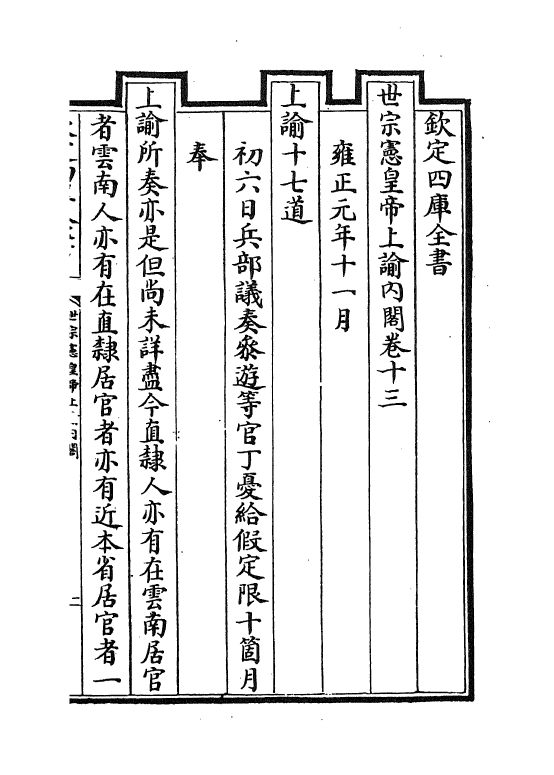 欽定四庫全書
世宗憲皇帝上諭內閣卷十三
雍正元年十一月
上諭十七道
初六日兵部議奏叅遊等官丁憂給假定限十箇月
奉
上諭所奏亦是但尚未詳盡今直隸人亦有在雲南居官
者雲南人亦有在直隸居官者亦有近本省居官者一